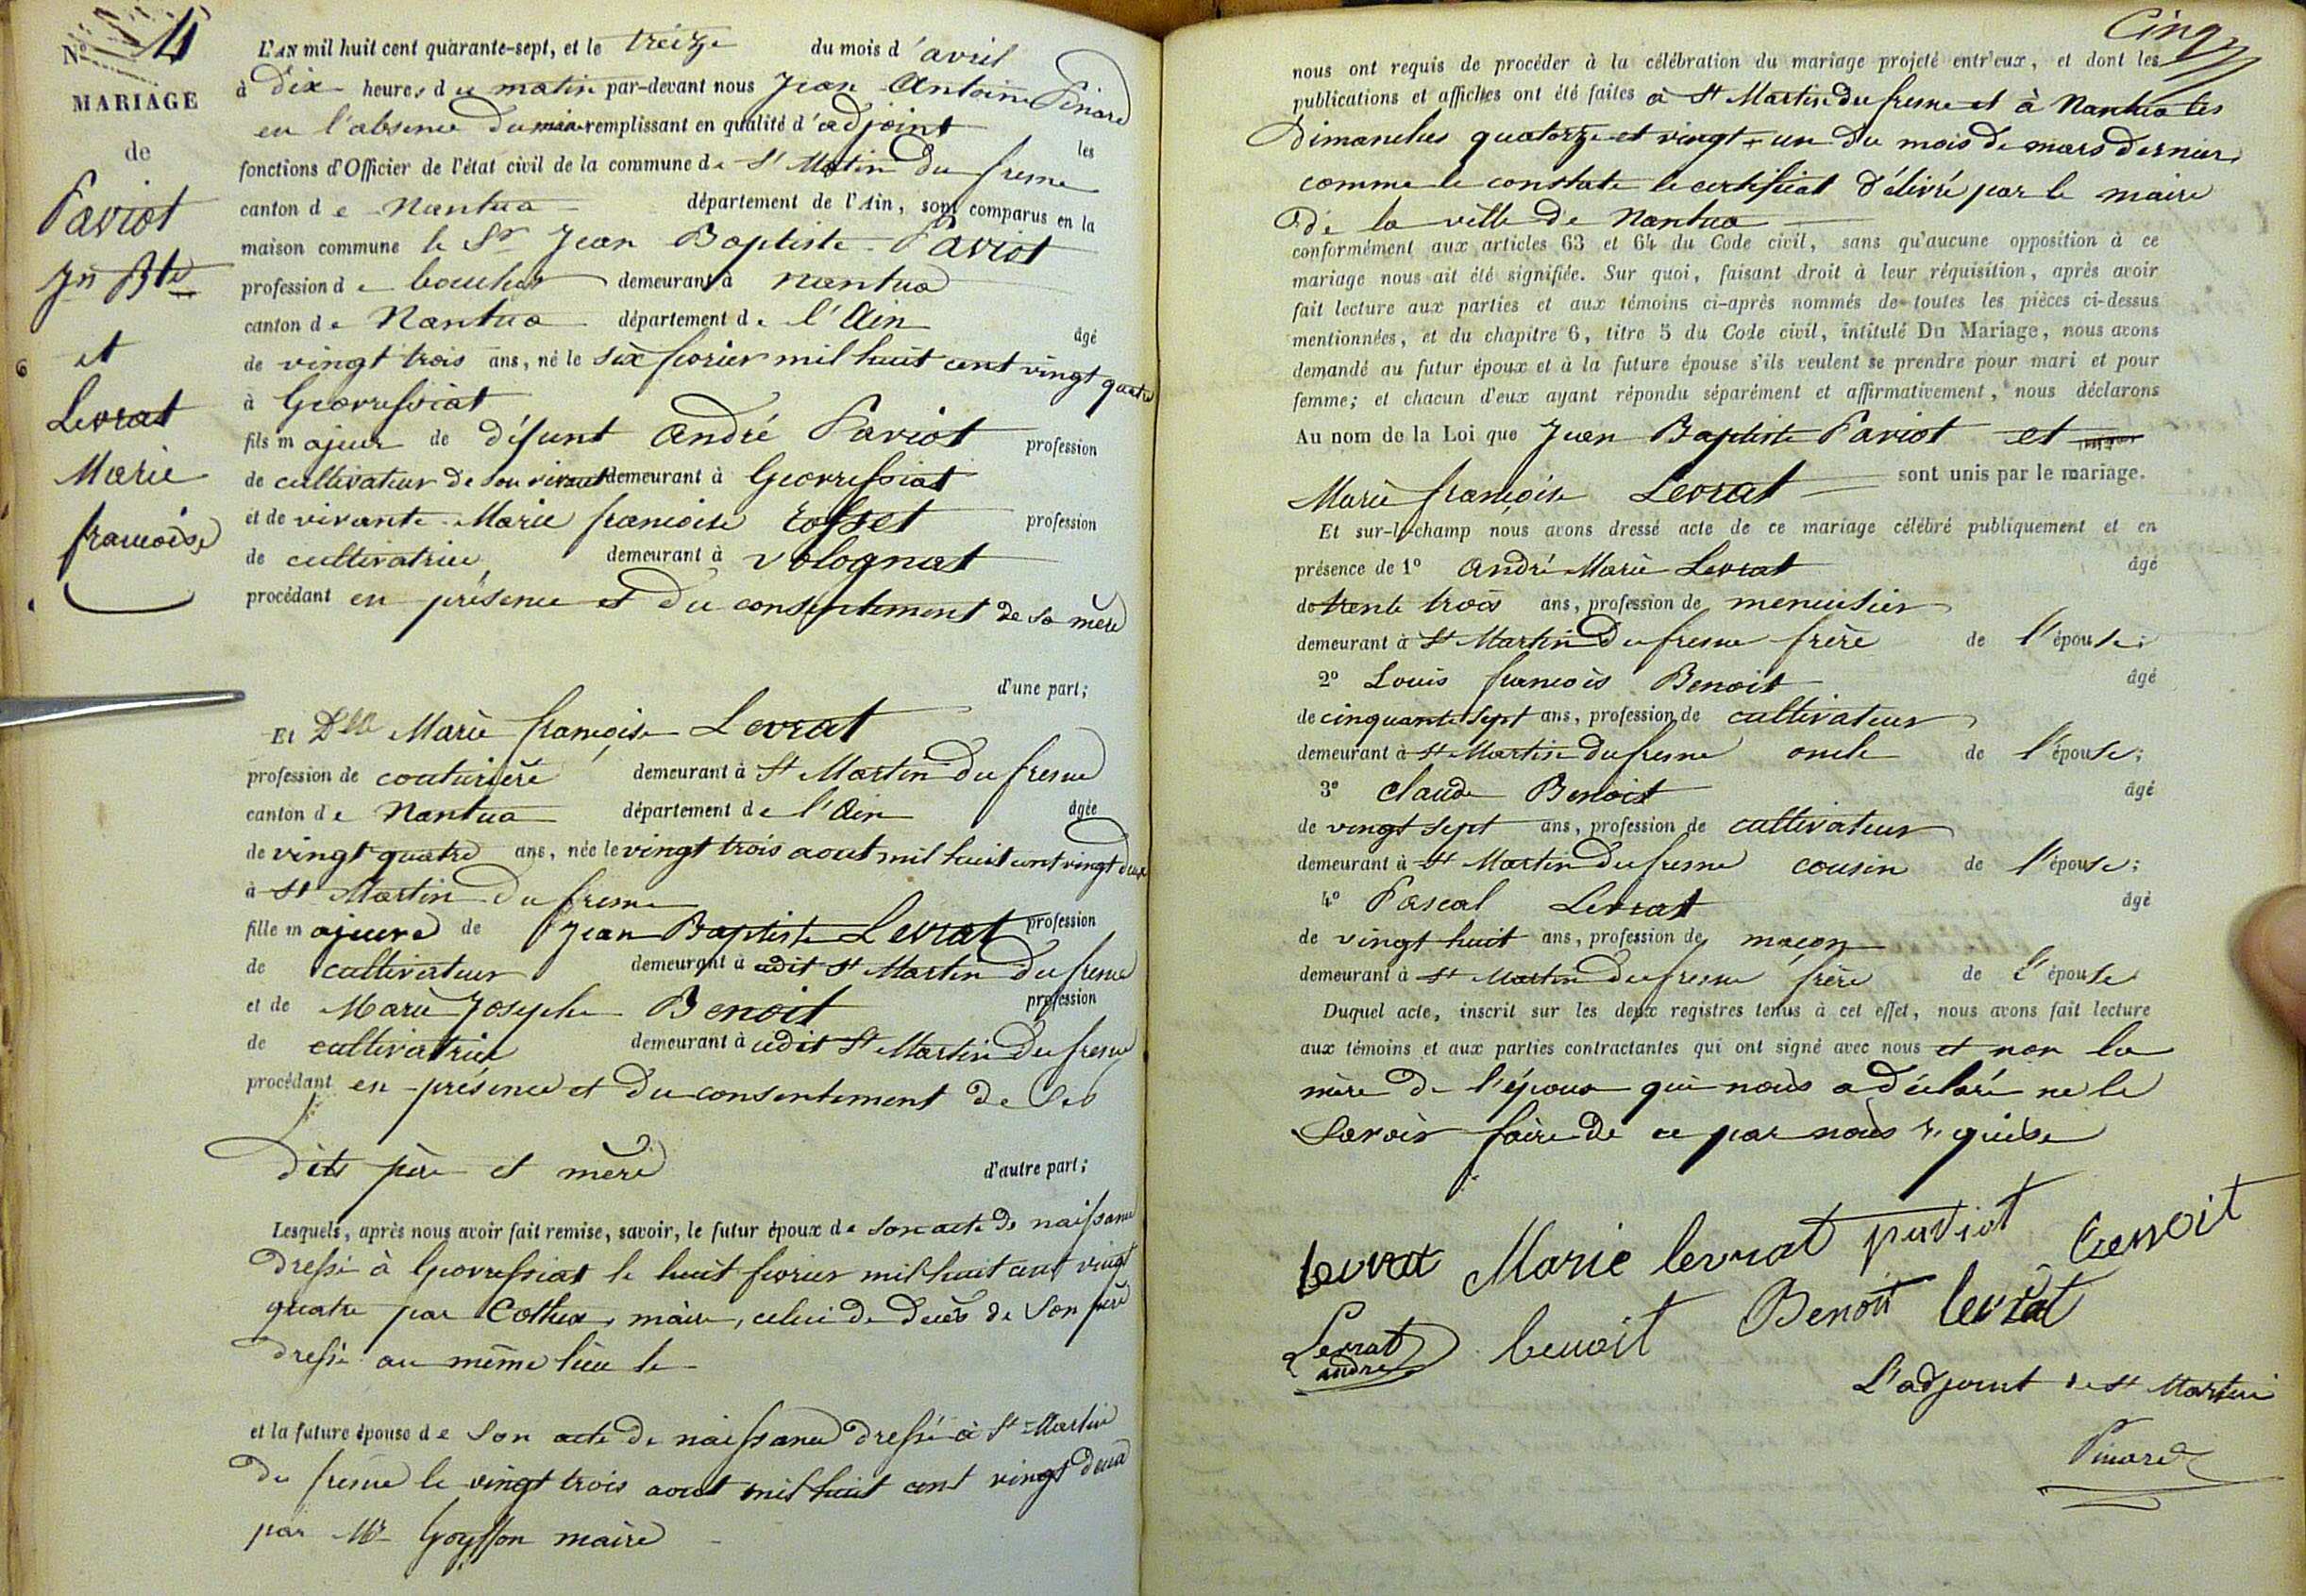 N° 4
MARIAGE
de
Paviot
Jn Bte
et
Levrat
Marie
francoise
L'AN mil huit cent quarante-sept, et le treize du mois d'avril
à dix heures du matin par-devant nous Jean Antoine Pinard
en l'absence du maire remplissant en qualité d'adjoint les
fonctions d'Officier de l'état civil de la commune de St Martin du fresne
canton de Nantua département de l'Ain, sont comparus en la
maison commune le Sr Jean Baptiste Paviot
profession de boucher demeurant à Nantua
canton de Nantua département de l'Ain âgé
de vingt trois ans, né le six fevrier mil huit cent vingt quatre
à Geovressiat
fils majeur de défunt André Paviot profession
de cultivateur de son vivant demeurant à Geovressiat
et de vivante Marie francoise Rosset profession
de cultivatrice demeurant à Volognat
procédant en présence et du consentement de sa mère
d'une part;
Et Dlle Marie françoise Levrat
profession de couturière demeurant à St Martin du fresne
canton de Nantua département de l'Ain âgée
de vingt quatre ans, née le vingt trois aout mil huit cent vingt deux
à St Martin du fresne
fille majeure de Jean Baptiste Levrat profession
de cultivateur demeurant à udit St Martin du fresne
et de Marie Josephe Benoit profession
de cultivatrice demeurant à udit St Martin du fresne
procédant en présence et du consentement de ses
dits père et mère d'autre part;
Lesquels, après nous avoir fait remise, savoir, le futur époux de son acte de naissance
dressé à Geovressiat le huit fevrier mil huit cent vingt
quatre par maire, celui de décès de son père
dressé au même lieu le
et la future épouse de son acte de naissance dressé à St Martin
du fresne le vingt trois aout mil huit cent vingt deux
par Mr Goyffon maire
Cinq
nous ont requis de procéder à la célébration du mariage projeté entr'eux, et dont les
publications et affiches ont été faites à St Martin du fresne et à Nantua les
dimanches quatorze et vingt un du mois de mars dernier
comme le constate le certificat délivré par le maire
de la ville de Nantua
conformément aux articles 63 et 64 du Code civil, sans qu'aucune opposition à ce
mariage nous ait été signifiée. Sur quoi, faisant droit à leur réquisition, après avoir
fait lecture aux parties et aux témoins ci-après nommés de toutes les pièces ci-dessus
mentionnées, et du chapitre 6, titre 5 du Code civil, intitulé Du Mariage, nous avons
demandé au futur époux et à la future épouse s'ils veulent se prendre pour mari et pour
femme; et chacun d'eux ayant répondu séparément et affirmativement, nous déclarons
Au nom de la Loi que Jean Baptiste Paviot et
Marie françoise Levrat sont unis par le mariage.
Et sur-le-champ nous avons dressé acte de ce mariage célébré publiquement et en
présence de 1° André Marie Levrat âgé
de trente trois ans, profession de menuisier
demeurant à St Martin du fresne frère de l'épouse;
2° Louis françois Benoit âgé
de cinquante sept ans, profession de cultivateur
demeurant à St Martin du fresne oncle de l'épouse;
3° Claude Benoit âgé
de vingt sept ans, profession de cultivateur
demeurant à St Martin du fresne cousin de l'épouse;
4° Pascal Levrat âgé
de vingt huit ans, profession de maçon
demeurant à St Martin du fresne frère de l'épouse
Duquel acte, inscrit sur les deux registres tenus à cet effet, nous avons fait lecture
aux témoins et aux parties contractantes qui ont signé avec nous et non la
mère de l'époux qui nous a déclaré ne le
savoir faire de ce par nous requise
levrat Marie levrat paviot benoit
Levrat andre benoit Benoit levrat
L'adjoint de St Martin
Pinard